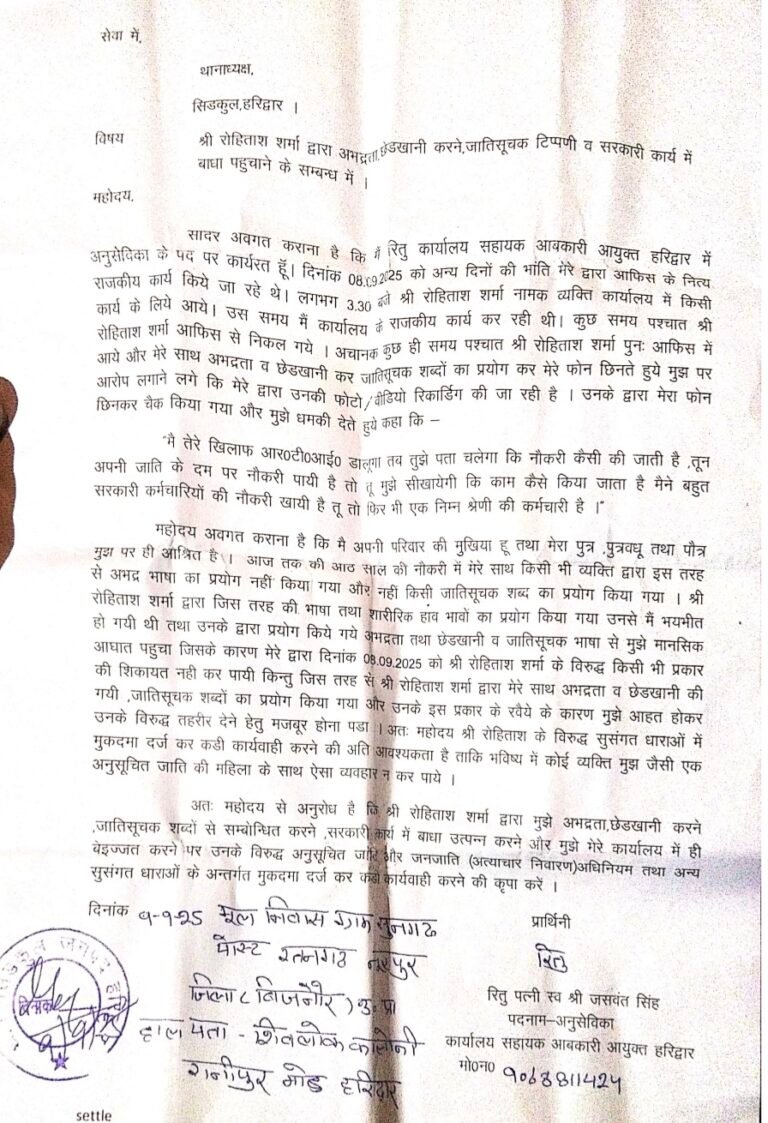 सेवा में,
थानाध्यक्ष,
सिडकुल,हरिद्वार ।
विषय श्री रोहिताश शर्मा द्वारा अभद्रता,छेडखानी करने,जातिसूचक टिप्पणी व सरकारी कार्य में
बाधा पहुचाने के सम्बन्ध में ।
महोदय,
सादर अवगत कराना है कि मैं रितु कार्यालय सहायक आबकारी आयुक्त हरिद्वार में
अनुसेविका के पद पर कार्यरत हूँ। दिनांक 08.09.2025 को अन्य दिनों की भांति मेरे द्वारा आफिस के नित्य
राजकीय कार्य किये जा रहे थे। लगभग 3.30 बजे श्री रोहिताश शर्मा नामक व्यक्ति कार्यालय में किसी
कार्य के लिये आये। उस समय मैं कार्यालय के राजकीय कार्य कर रही थी। कुछ समय पश्चात श्री
रोहिताश शर्मा आफिस से निकल गये । अचानक कुछ ही समय पश्चात श्री रोहिताश शर्मा पुनः आफिस में
आये और मेरे साथ अभद्रता व छेडखानी कर जातिसूचक शब्दों का प्रयोग कर मेरे फोन छिनते हुये मुझ पर
आरोप लगाने लगे कि मेरे द्वारा उनकी फोटो/वीडियो रिकार्डिग की जा रही है । उनके द्वारा मेरा फोन
छिनकर चैक किया गया और मुझे धमकी देते हुये कहा कि –
"मै तेरे खिलाफ आर0टी0आई0 डालूगा तब तुझे पता चलेगा कि नौकरी कैसी की जाती है ,तून
अपनी जाति के दम पर नौकरी पायी है तो तू मुझे सीखायेगी कि काम कैसे किया जाता है मैने बहुत
सरकारी कर्मचारियों की नौकरी खायी है तू तो फिर भी एक निम्न श्रेणी की कर्मचारी है ।"
महोदय अवगत कराना है कि मै अपनी परिवार की मुखिया हू तथा मेरा पुत्र ,पुत्रवधू तथा पौत्र
मुझ पर ही आश्रित है । आज तक की आठ साल की नौकरी में मेरे साथ किसी भी व्यक्ति द्वारा इस तरह
से अभद्र भाषा का प्रयोग नहीं किया गया और नहीं किसी जातिसूचक शब्द का प्रयोग किया गया । श्री
रोहिताश शर्मा द्वारा जिस तरह की भाषा तथा शारीरिक हाव भावों का प्रयोग किया गया उनसे मैं भयभीत
हो गयी थी तथा उनके द्वारा प्रयोग किये गये अभद्रता तथा छेडखानी व जातिसूचक भाषा से मुझे मानसिक
आघात पहुचा जिसके कारण मेरे द्वारा दिनांक 08.09.2025 को श्री रोहिताश शर्मा के विरुद्ध किसी भी प्रकार
की शिकायत नही कर पायी किन्तु जिस तरह से श्री रोहिताश शर्मा द्वारा मेरे साथ अभद्रता व छेडखानी की
गयी ,जातिसूचक शब्दों का प्रयोग किया गया और उनके इस प्रकार के रवैये के कारण मुझे आहत होकर
उनके विरुद्ध तहरीर देने हेतु मजबूर होना पडा । अतः महोदय श्री रोहिताश के विरुद्ध सुसंगत धाराओं में
मुकदमा दर्ज कर कडी कार्यवाही करने की अति आवश्यकता है ताकि भविष्य में कोई व्यक्ति मुझ जैसी एक
अनुसूचित जाति की महिला के साथ ऐसा व्यवहार न कर पाये ।
अतः महोदय से अनुरोध है कि श्री रोहिताश शर्मा द्वारा मुझे अभद्रता,छेडखानी करने
,जातिसूचक शब्दों से सम्बोन्धित करने ,सरकारी कार्य में बाधा उत्पन्न करने और मुझे मेरे कार्यालय में ही
बेइज्जत करने पर उनके विरुद्ध अनुसूचित जाति और जनजाति (अत्याचार निवारण)अधिनियम तथा अन्य
सुसंगत धाराओं के अन्तर्गत मुकदमा दर्ज कर कडी कार्यवाही करने की कृपा करें ।
दिनांक 9-9-25 मूल निवास ग्राम सुनगढ प्रार्थिनी
पोस्ट रतनगढ नूरपुर रितु
जिला (बिजनौर) उ. प्रा
रितु पत्नी स्व श्री जसवंत सिंह
हाल पता - शिवलोक कालोनी
पदनाम-अनुसेविका
कार्यालय सहायक आबकारी आयुक्त हरिद्वार
रानीपुर मोड हरिद्वार
मो0न0 9068811424
settle